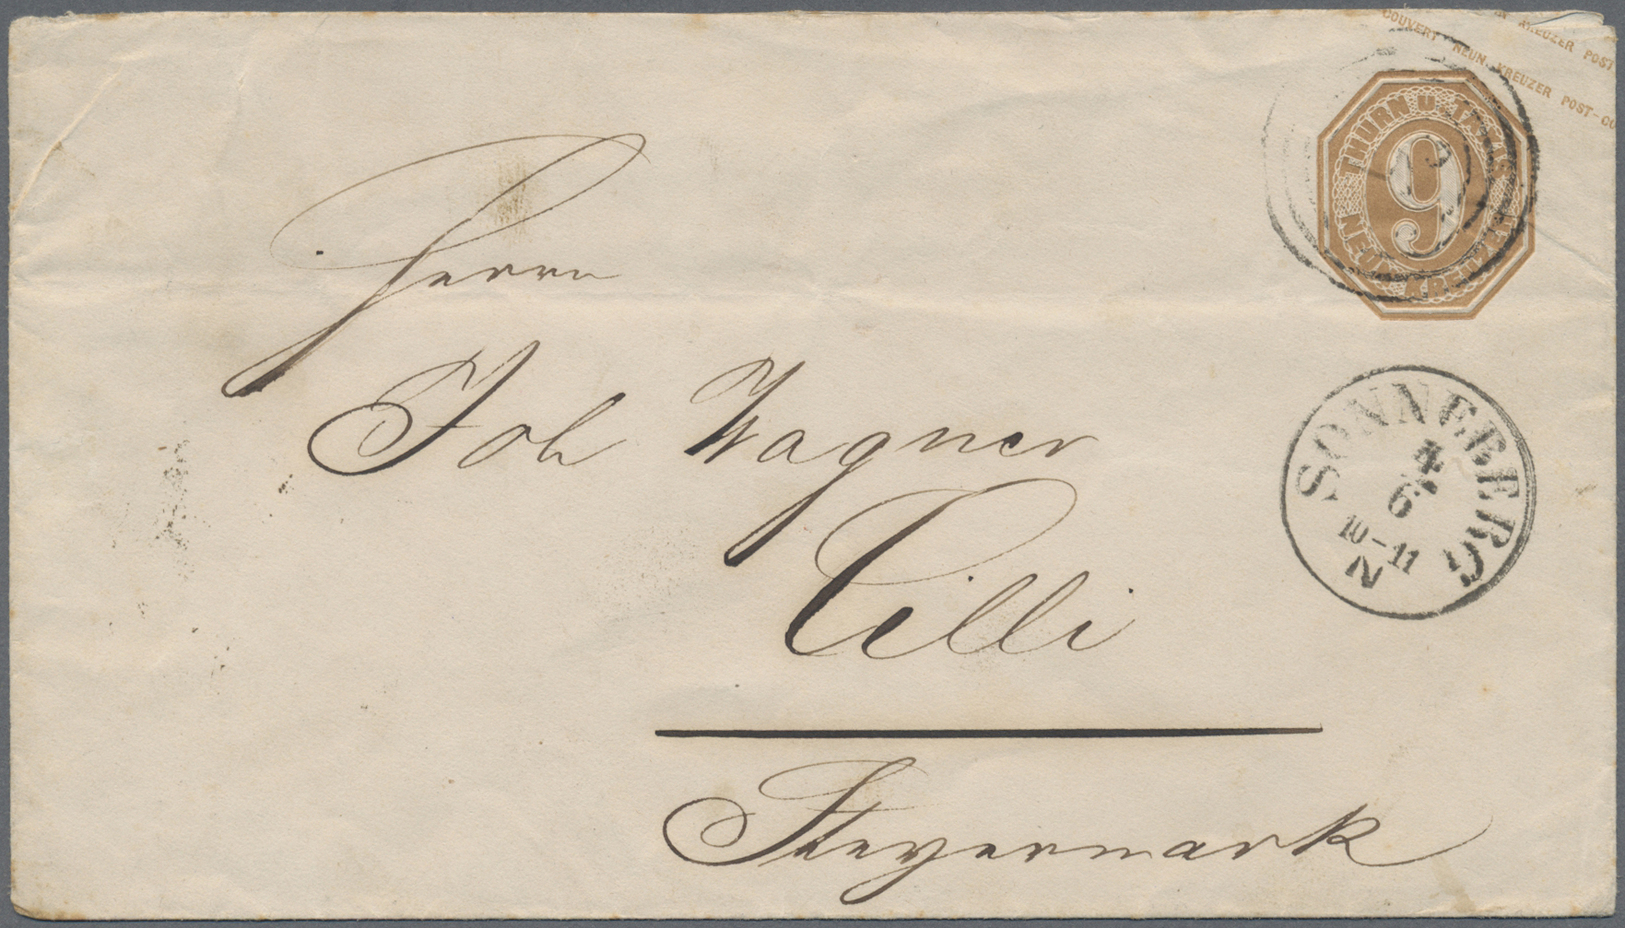 N KREUZER POST
COUVERT NEUN KREUZER POST-CO
THURN U. TAXIS
9
NEUN KREUZER
Herrn
Joh Wagner
Cilli
Steyermark
SONNEBERG
4
6
10-11
N